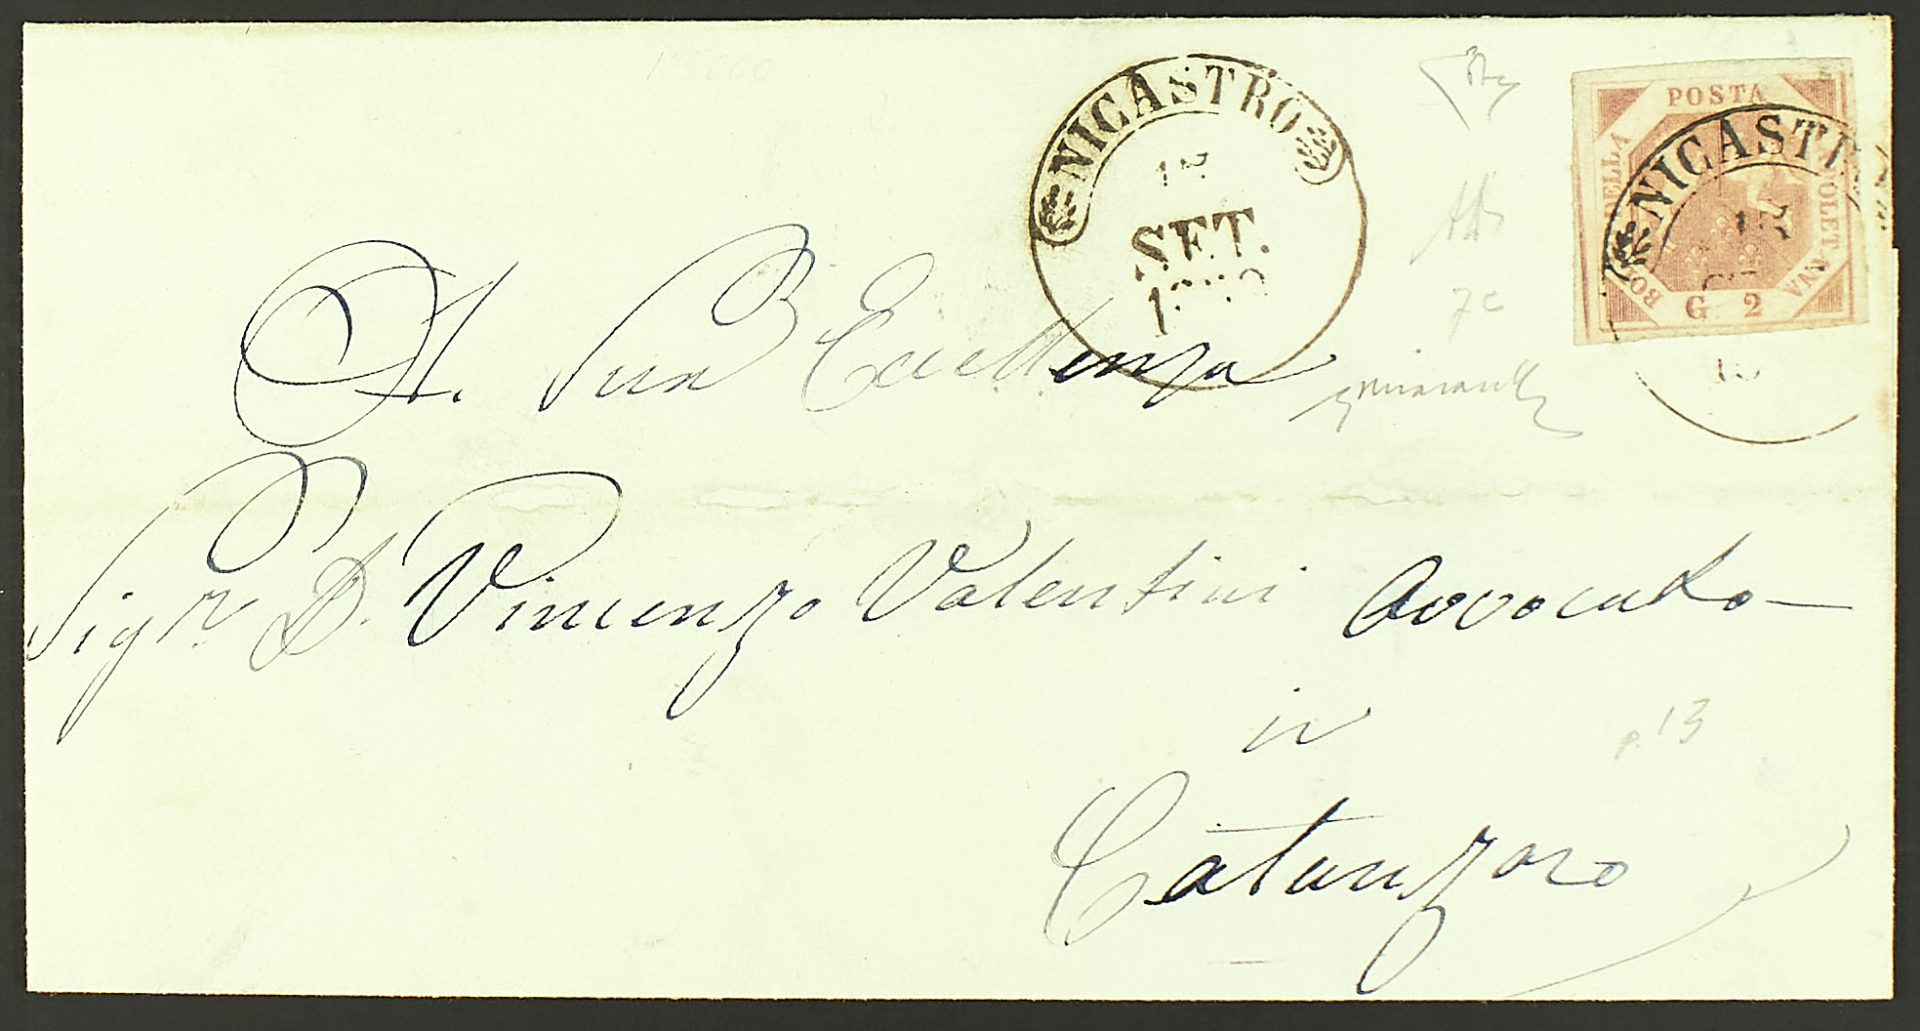 NICASTRO
15
SET.
POSTA
DELLA
NAPOLETANA
BO
G 2
NICASTR
15
A. Sua Eccellenza
Sigr. D. Vincenzo Valentini Avvocato
in
Catanzaro
7c
p. 13